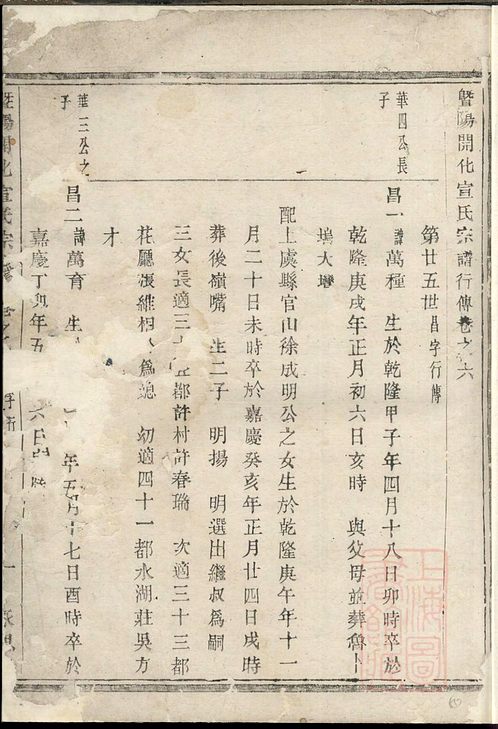 暨陽開化宣氏宗譜行傳卷之六
第廿五世昌字行傳
華四公長子
昌一諱萬種 生於乾隆甲子年四月十八日卯時卒於
乾隆庚戌年正月初六日亥時 與父母並葬魯卜
塢大
配上虞縣官山徐成明公之女生於乾隆庚午年十一
月二十日未時卒於嘉慶癸亥年正月廿四日戌時
葬後嶺嘴 生二子 明揚 明選出繼叔爲嗣
三女長適三十五都許村許春瑞 次適三十三都
花廳張維相 爲媳 幼適四十一都水湖莊吳方
才
華三公之子
昌二諱萬育 生 年五月十七日酉時卒於
嘉慶丁卯年五 六日
陽開化宣氏宗